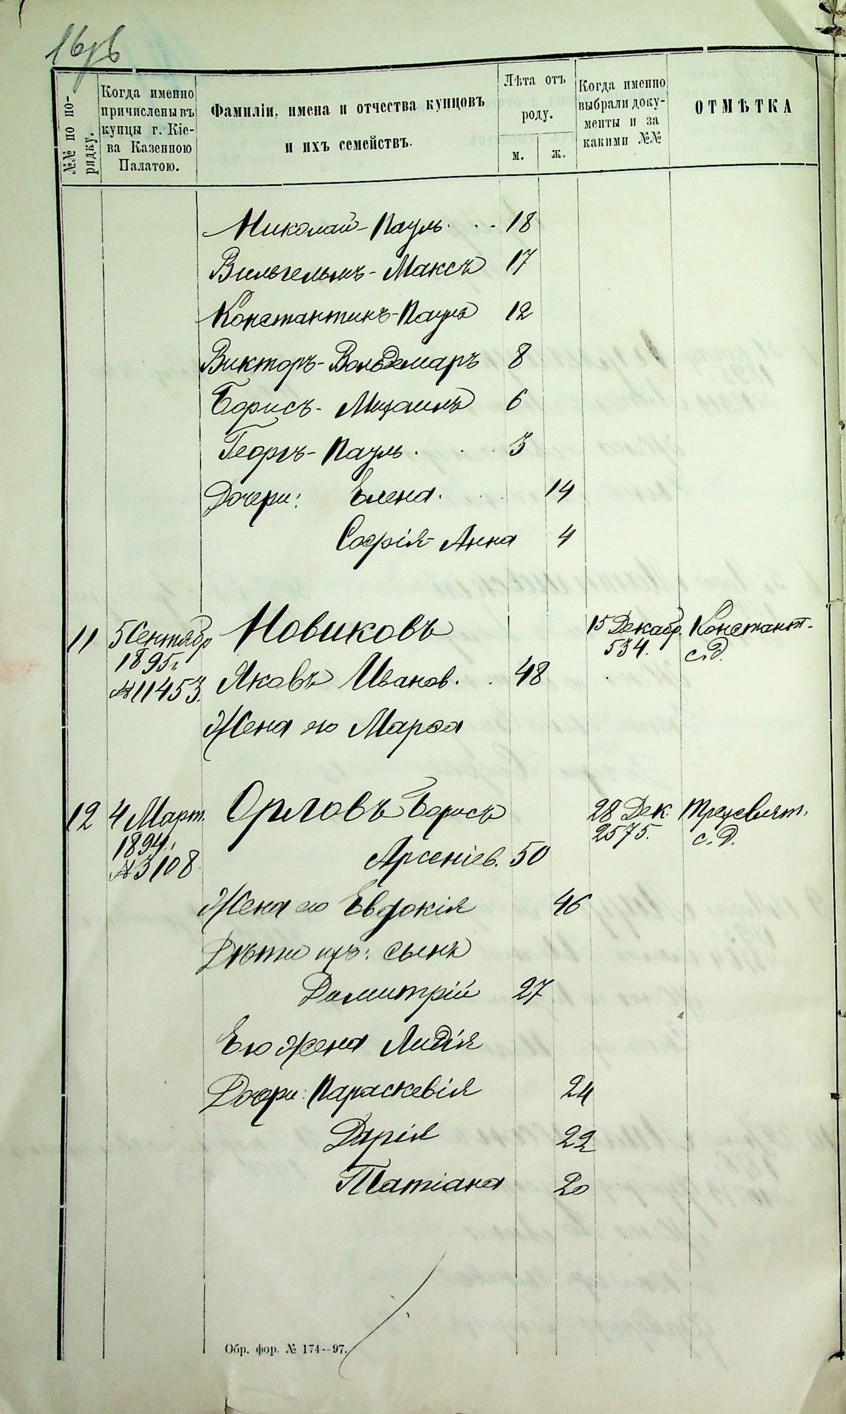 №№ по порядку.
Когда именно
причислены въ
купцы г. Кіе-
ва Казенною
Палатою.
Фамиліи, имена и отчества купцовъ
и ихъ семействъ.
Лѣта отъ
роду.
м.
ж.
Когда именно
выбрали доку-
менты и за
какими №№
ОТМѢТКА
Николай-Пауль 18
Вильгельмъ-Максъ 17
Константинъ-Пауль 12
Викторъ-Вольдемаръ 8
Борисъ-Михаилъ 6
Георгъ-Пауль 3
Дочери: Елена 14
Софія-Анна 4
11 5 Сентябр Новиковъ 15 Декабр. Констант.
1895 г. 534. с.д.
№11453. Яковъ Иванов. 48
Жена его Марѳа
12 4 Март. Орловъ Борисъ 28 Дек. Трехсвят.
1894. 2575. с.д.
№3108. Арсеніев. 50
Жена его Евдокія 46
Дѣти ихъ: сынъ
Димитрій 27
Его жена Лидія
Дочери: Параскевія 24
Дарія 22
Татіана 20
Обр. фор. № 174—97.